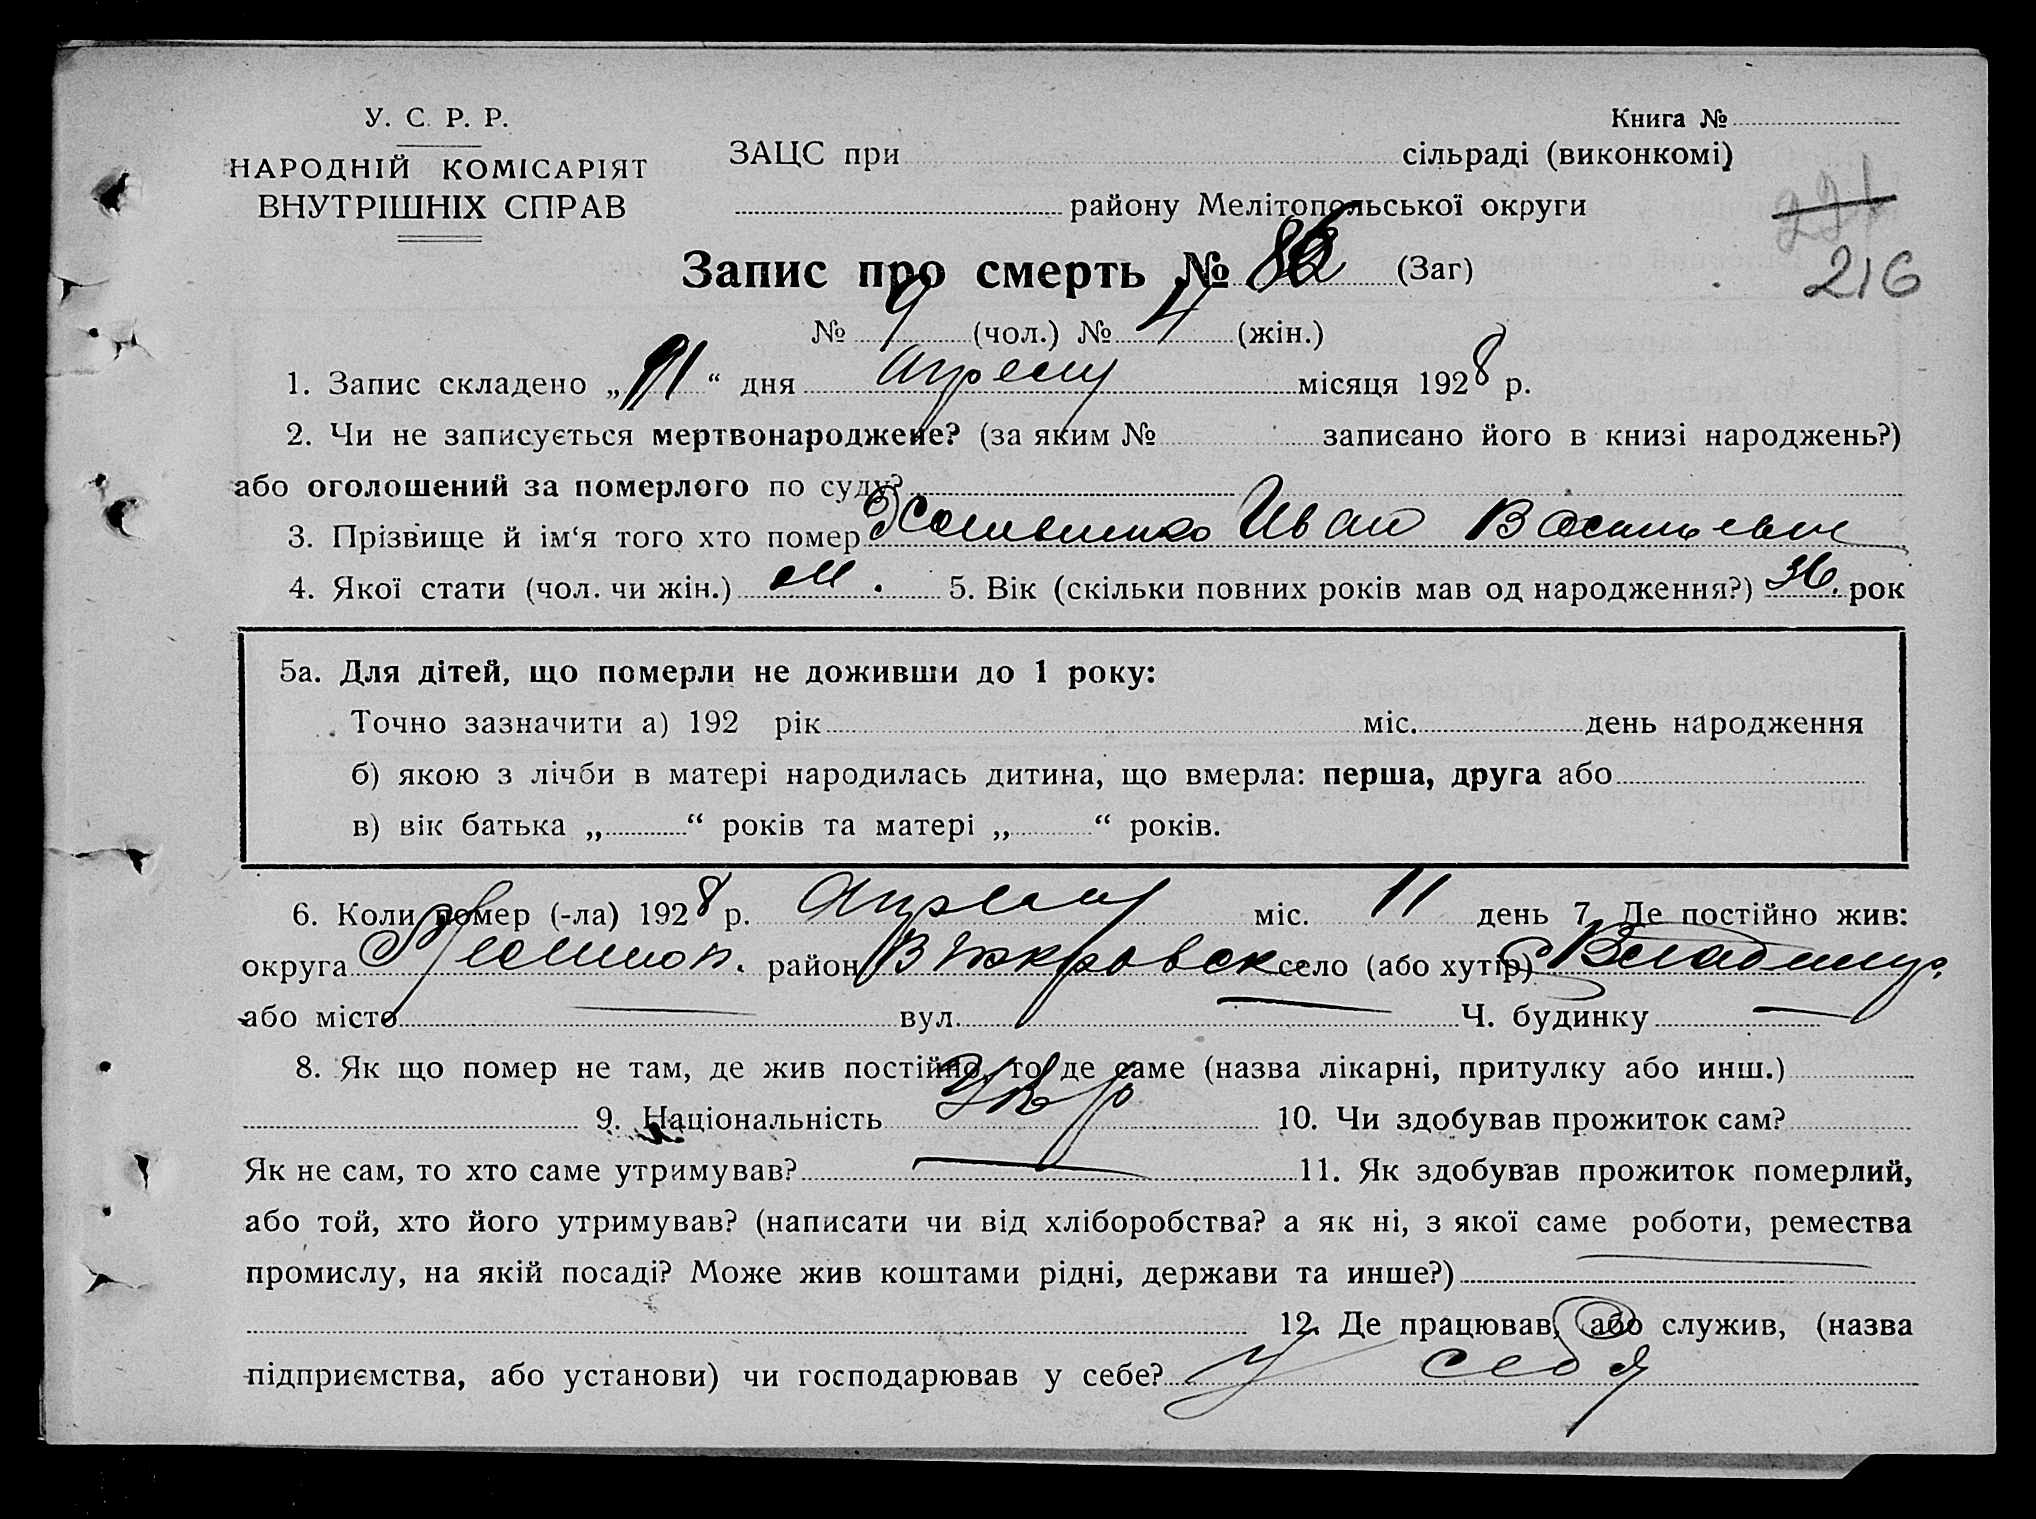 У. С. Р. Р.
НАРОДНІЙ КОМІСАРІЯТ
ВНУТРІШНІХ СПРАВ
Книга №
ЗАЦС при сільраді (виконкомі)
району Мелітопольської округи
216
Запис про смерть № (Заг)
№ 9 (чол.) № 4 (жін.)
1. Запис складено „ “ дня апреля місяця 1928 р.
2. Чи не записується мертвонароджене? (за яким № записано його в книзі народжень?)
або оголошений за померлого по суду?
3. Прізвище й ім‘я того хто помер Иван Васильевич
4. Якої стати (чол. чи жін.) м. 5. Вік (скільки повних років мав од народження?) 36. рок
5а. Для дітей, що померли не доживши до 1 року:
Точно зазначити а) 192 рік міс. день народження
б) якою з лічби в матері народилась дитина, що вмерла: перша, друга або
в) вік батька „ “ років та матері „ “ років.
6. Коли помер (-ла) 1928 р. Апреля міс. 11 день 7. Де постійно жив:
округа район село (або хутір) Владимир.
або місто — вул. — Ч. будинку —
8. Як що помер не там, де жив постійно, то де саме (назва лікарні, притулку або инш.)
9. Національність Укр 10. Чи здобував прожиток сам?
Як не сам, то хто саме утримував? — 11. Як здобував прожиток померлий,
або той, хто його утримував? (написати чи від хліборобства? а як ні, з якої саме роботи, ремества
промислу, на якій посаді? Може жив коштами рідні, держави та инше?) —
12. Де працював, або служив, (назва
підприємства, або установи) чи господарював у себе? У себя